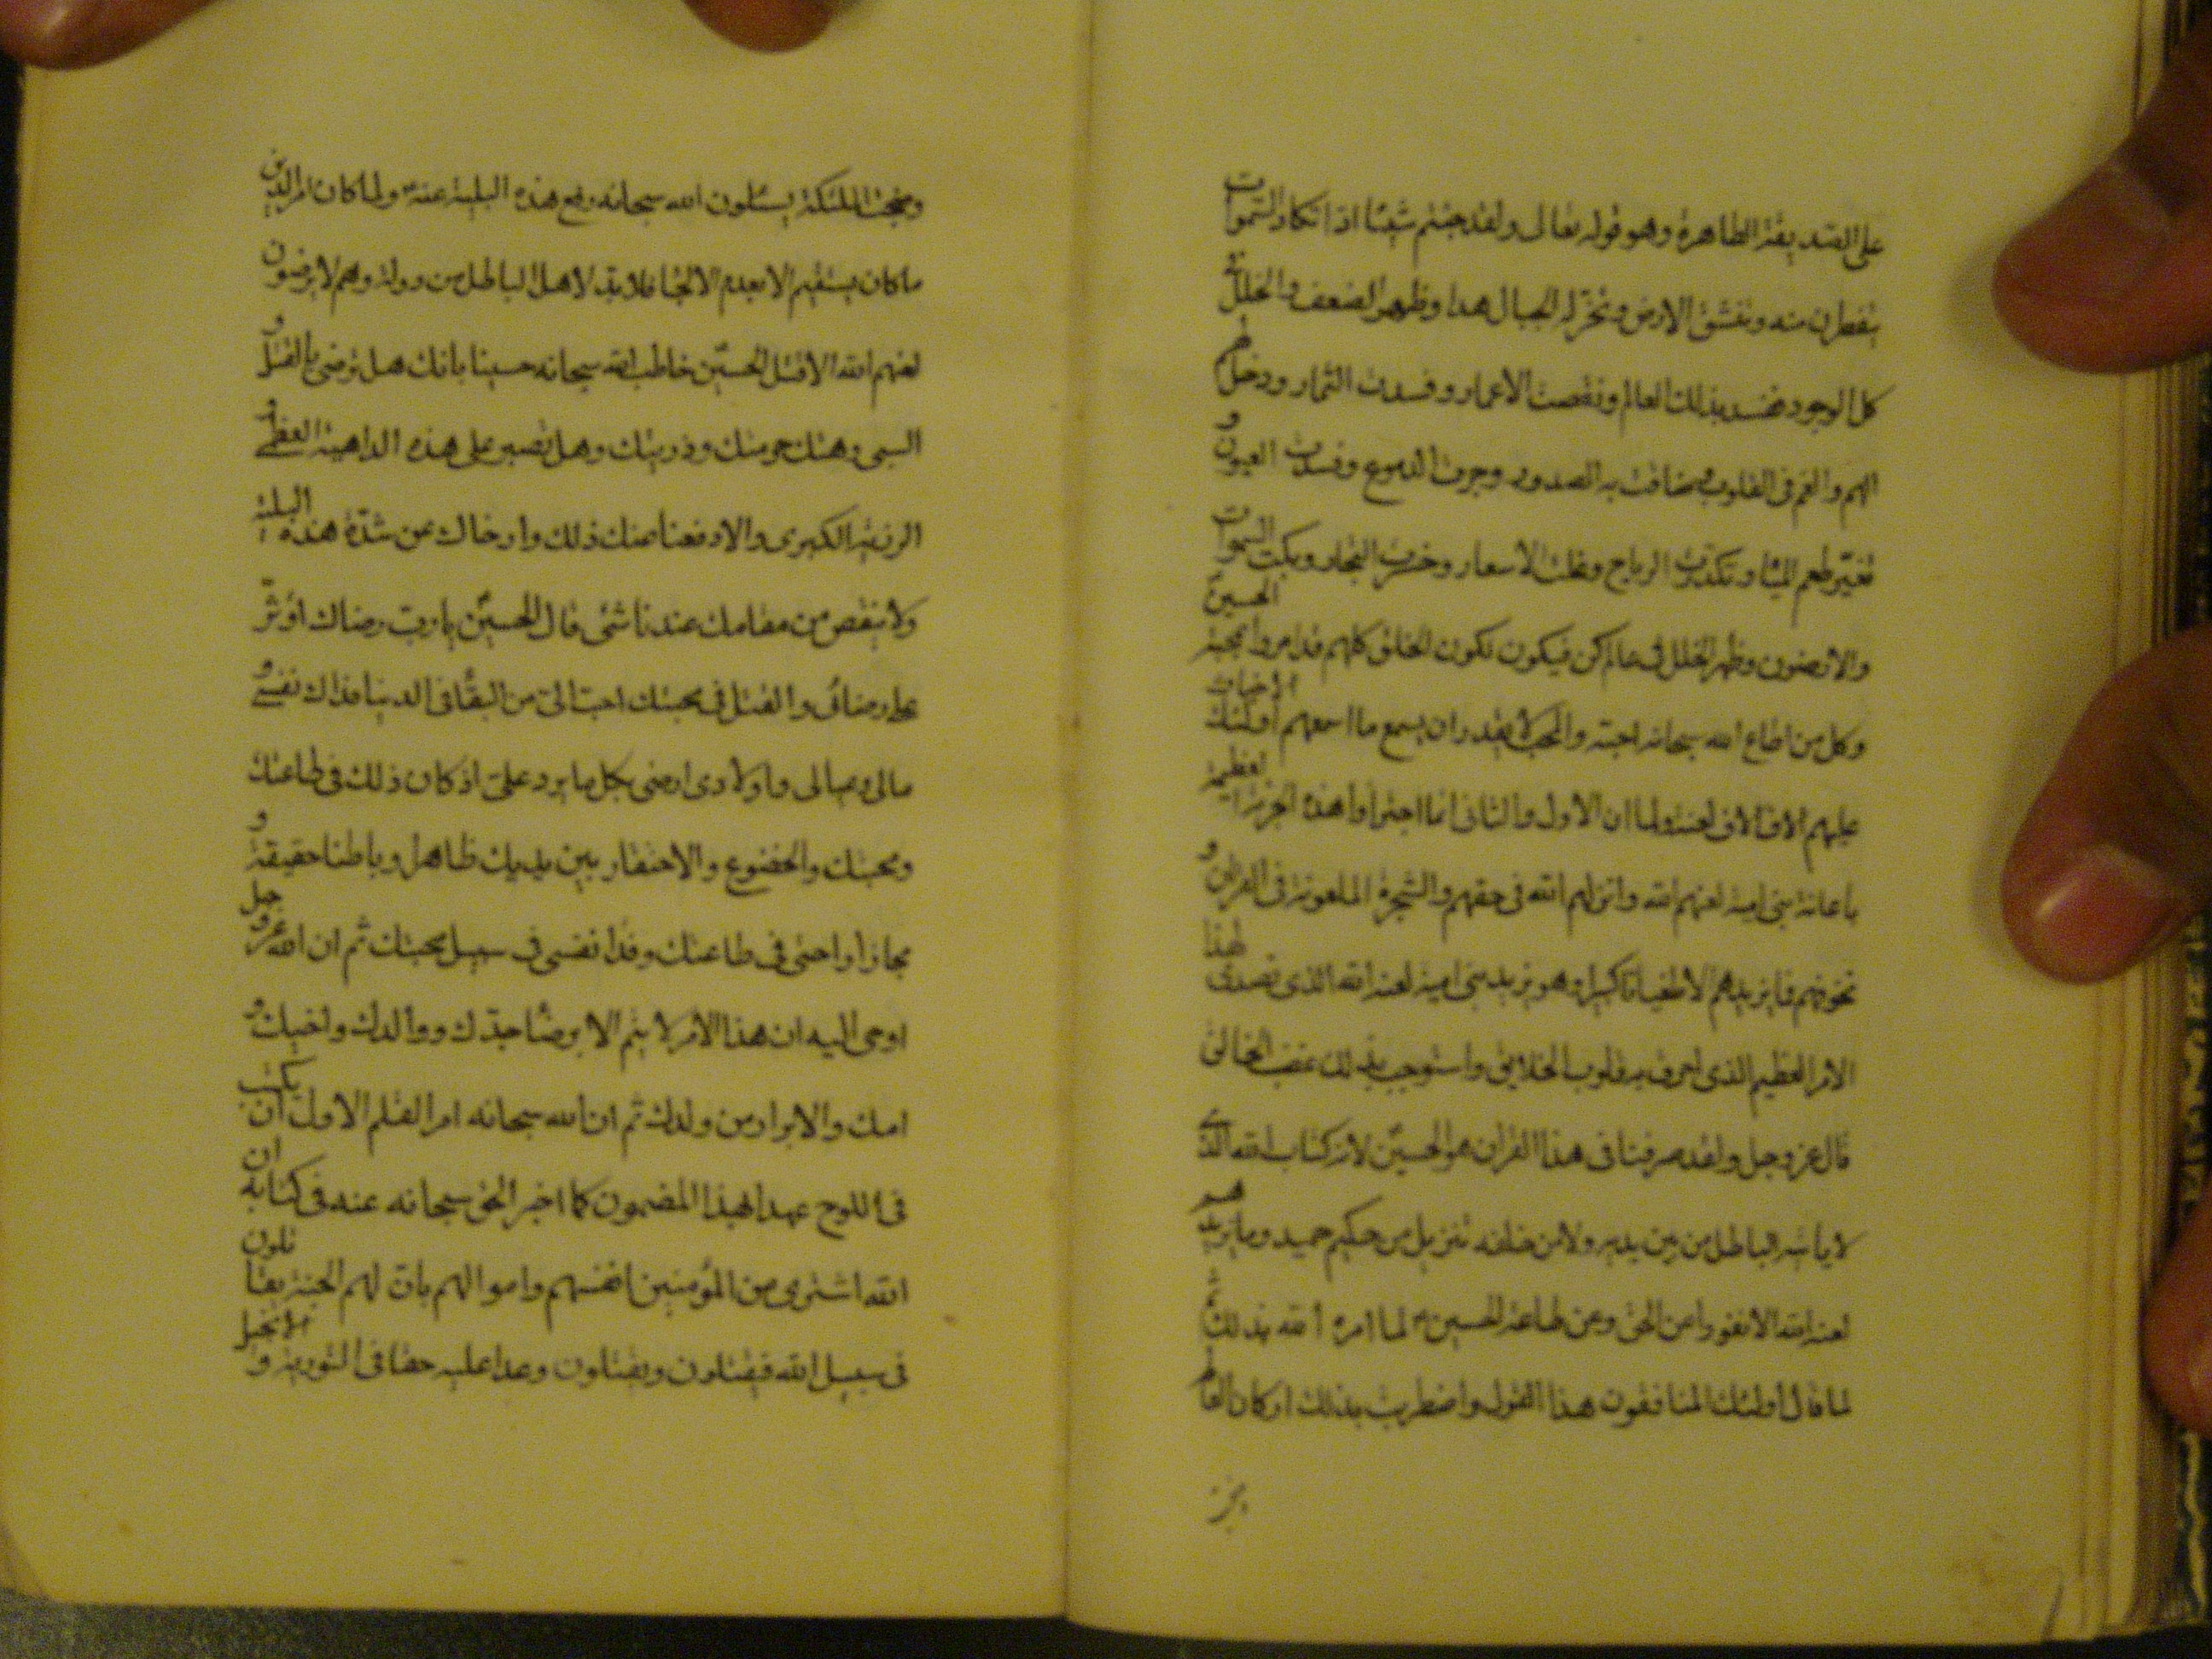 على الصديقة الطاهرة وهو قوله تعالى ولقد جئتم شيئا ادّا تكاد السموات
يتفطرن منه وتنشق الارض وتخرّ له الجبال هدا وظهر الضعف والخلل في
كل الوجود ففسد بذلك العالم ونقصت الاعمار وفسدت الثمار ودخل لهم
الهم والغم في القلوب وضاقت به الصدور وجرت الدموع وفسدت العيون و
تغيّر طعم المياه وتكدرت الرياح وغلت الاسعار وخسرت التجار وبكت السموات
والارضون وظهر الخلل في عالم كن فيكون لكون الخلق كلهم قد امروا بمحبة الحسين
وكل من اطاع الله سبحانه احبه والمحب لا يقدر ان يسمع ما اسمعهم اولئك الاخباث
عليهم الاف الاف لعنة ولما ان الاول والثاني انما اجترأوا هذه الجرئة العظيمة
باعانة بني امية لعنهم الله وانزل لهم الله في حقهم والشجرة الملعونة في القران و
نخوفهم فما يزيدهم الا طغيانا كبيرا وهو يزيد بني امية لعنه الله الذي تصدى لهذا
الامر العظيم الذي احرق به قلوب الخلايق واستوجب بذلك غضب الخالق
قال عز وجل ولقد صرفنا في هذا القران هو الحسينؑ لانه كتاب الله الذي
لا يأتيه الباطل من بين يديه ولا من خلفه تنزيل من حكيم حميد وما يزيدهم
لعنه الله الا نفورا من الحق وعن طاعة الحسينؑ لما امره الله بذلك ثم
لما قال اولئك المنافقون هذا القول واضطربت بذلك اركان العالم
وضجت الملئكة يسئلون الله سبحانه رفع هذه البلية عنهؑ ولما كان امر الدين
ما كان يستقيم الا بعدم الالجاء فلابد لاهل الباطل من دولة وهم لا يرضون
لعنهم الله الا قتل الحسينؑ خاطب الله سبحانه حسينا بانك هل ترضى بالقتل و
السبي وهتك حرمتك وذريتك وهل تصبر على هذه الداهية العظمى و
الرزية الكبرى والا دفعنا عنك ذلك وارخاك عن شدّة هذه البلية
ولا ينقص من مقامك عندنا شئ قال الحسينؑ يا رب رضاك اوثر
على رضائي والقتل في محبتك احب الي من البقاء في الدنيا فداك نفسي و
مالي وعيالي واولادي ارضى بكل ما يرد عليّ اذ كان ذلك في طاعتك
ومحبتك والخضوع والاحتقار بين يديك ظاهرا وباطنا حقيقة و
مجازا واحتي في طاعتك وفدا نفسي في سبيل محبتك ثم ان الله عز وجل
اوحى اليه ان هذا الامر لا يتم الا برضاء جدّك ووالدك واخيك و
امك والابرار من ولدك ثم ان الله سبحانه امر القلم الاول ان يكتب
في اللوح عهدا بهذا المضمون كما اخبر الحق سبحانه عنه في كتابه ان
الله اشترى من المؤمنين انفسهم واموالهم بان لهم الجنة يقاتلون
في سبيل الله فيقتلون ويقتلون وعدا عليه حقا في التورية والانجيل